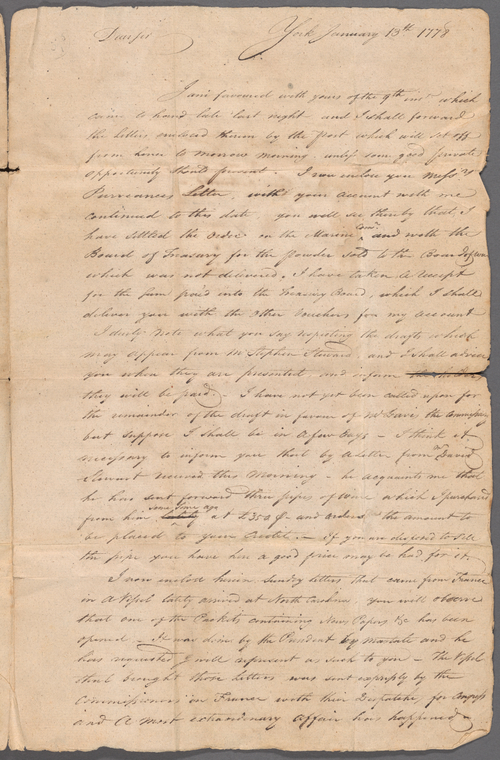 Dear sir York January 13th 1778
I am favoured with yours of the 9th inst which
came to hand late last night and I shall forward
the letters enclosed therein by the Post which will set off
from hence to morrow morning unless some good private
opportunity should present. I now inclose you Messrs
Purviances Letter, with your Account with me
continued to this date, you will see thereby that I
have settled the order on the Marine Come. and with the
Board of Treasury for the powder sold to the Board of War
which was not delivered, I have taken a receipt
for the sum paid into the Treasury Board, which I shall
deliver you with the other vouchers for my account
I duely Note what you say respecting the drafts which
may appear from Mr Stephen Steward and I shall advise
you when they are presented and inform
they will be paid. I have not yet been called upon for
the remainder of the draft in favour of Mr the Commissary
but suppose I shall be in a few days – I think it
necessary to inform you that by a Letter from Mr David
Stewart received this Morning – he acquaints me that
he has sent forward three pipes of Wine which I purchased
from him some time ago at £350 and orders the amount to
be placed to your Credit. – if you are disposed to sell
the pipe you have here a good price may be had for it.
I now enclose herein sundry letters that came from France
in a Vessel lately arrived at North Carolina, you will observe
that one of the Packets containing News Papers &c has been
opened – it was done by the President by mistake and he
has requested I will represent as such to you – The Vessel
that brought those letters was sent expressly by the
Commissioners in France with their Dispatches for Congress
and a most extraordinary affair has happened